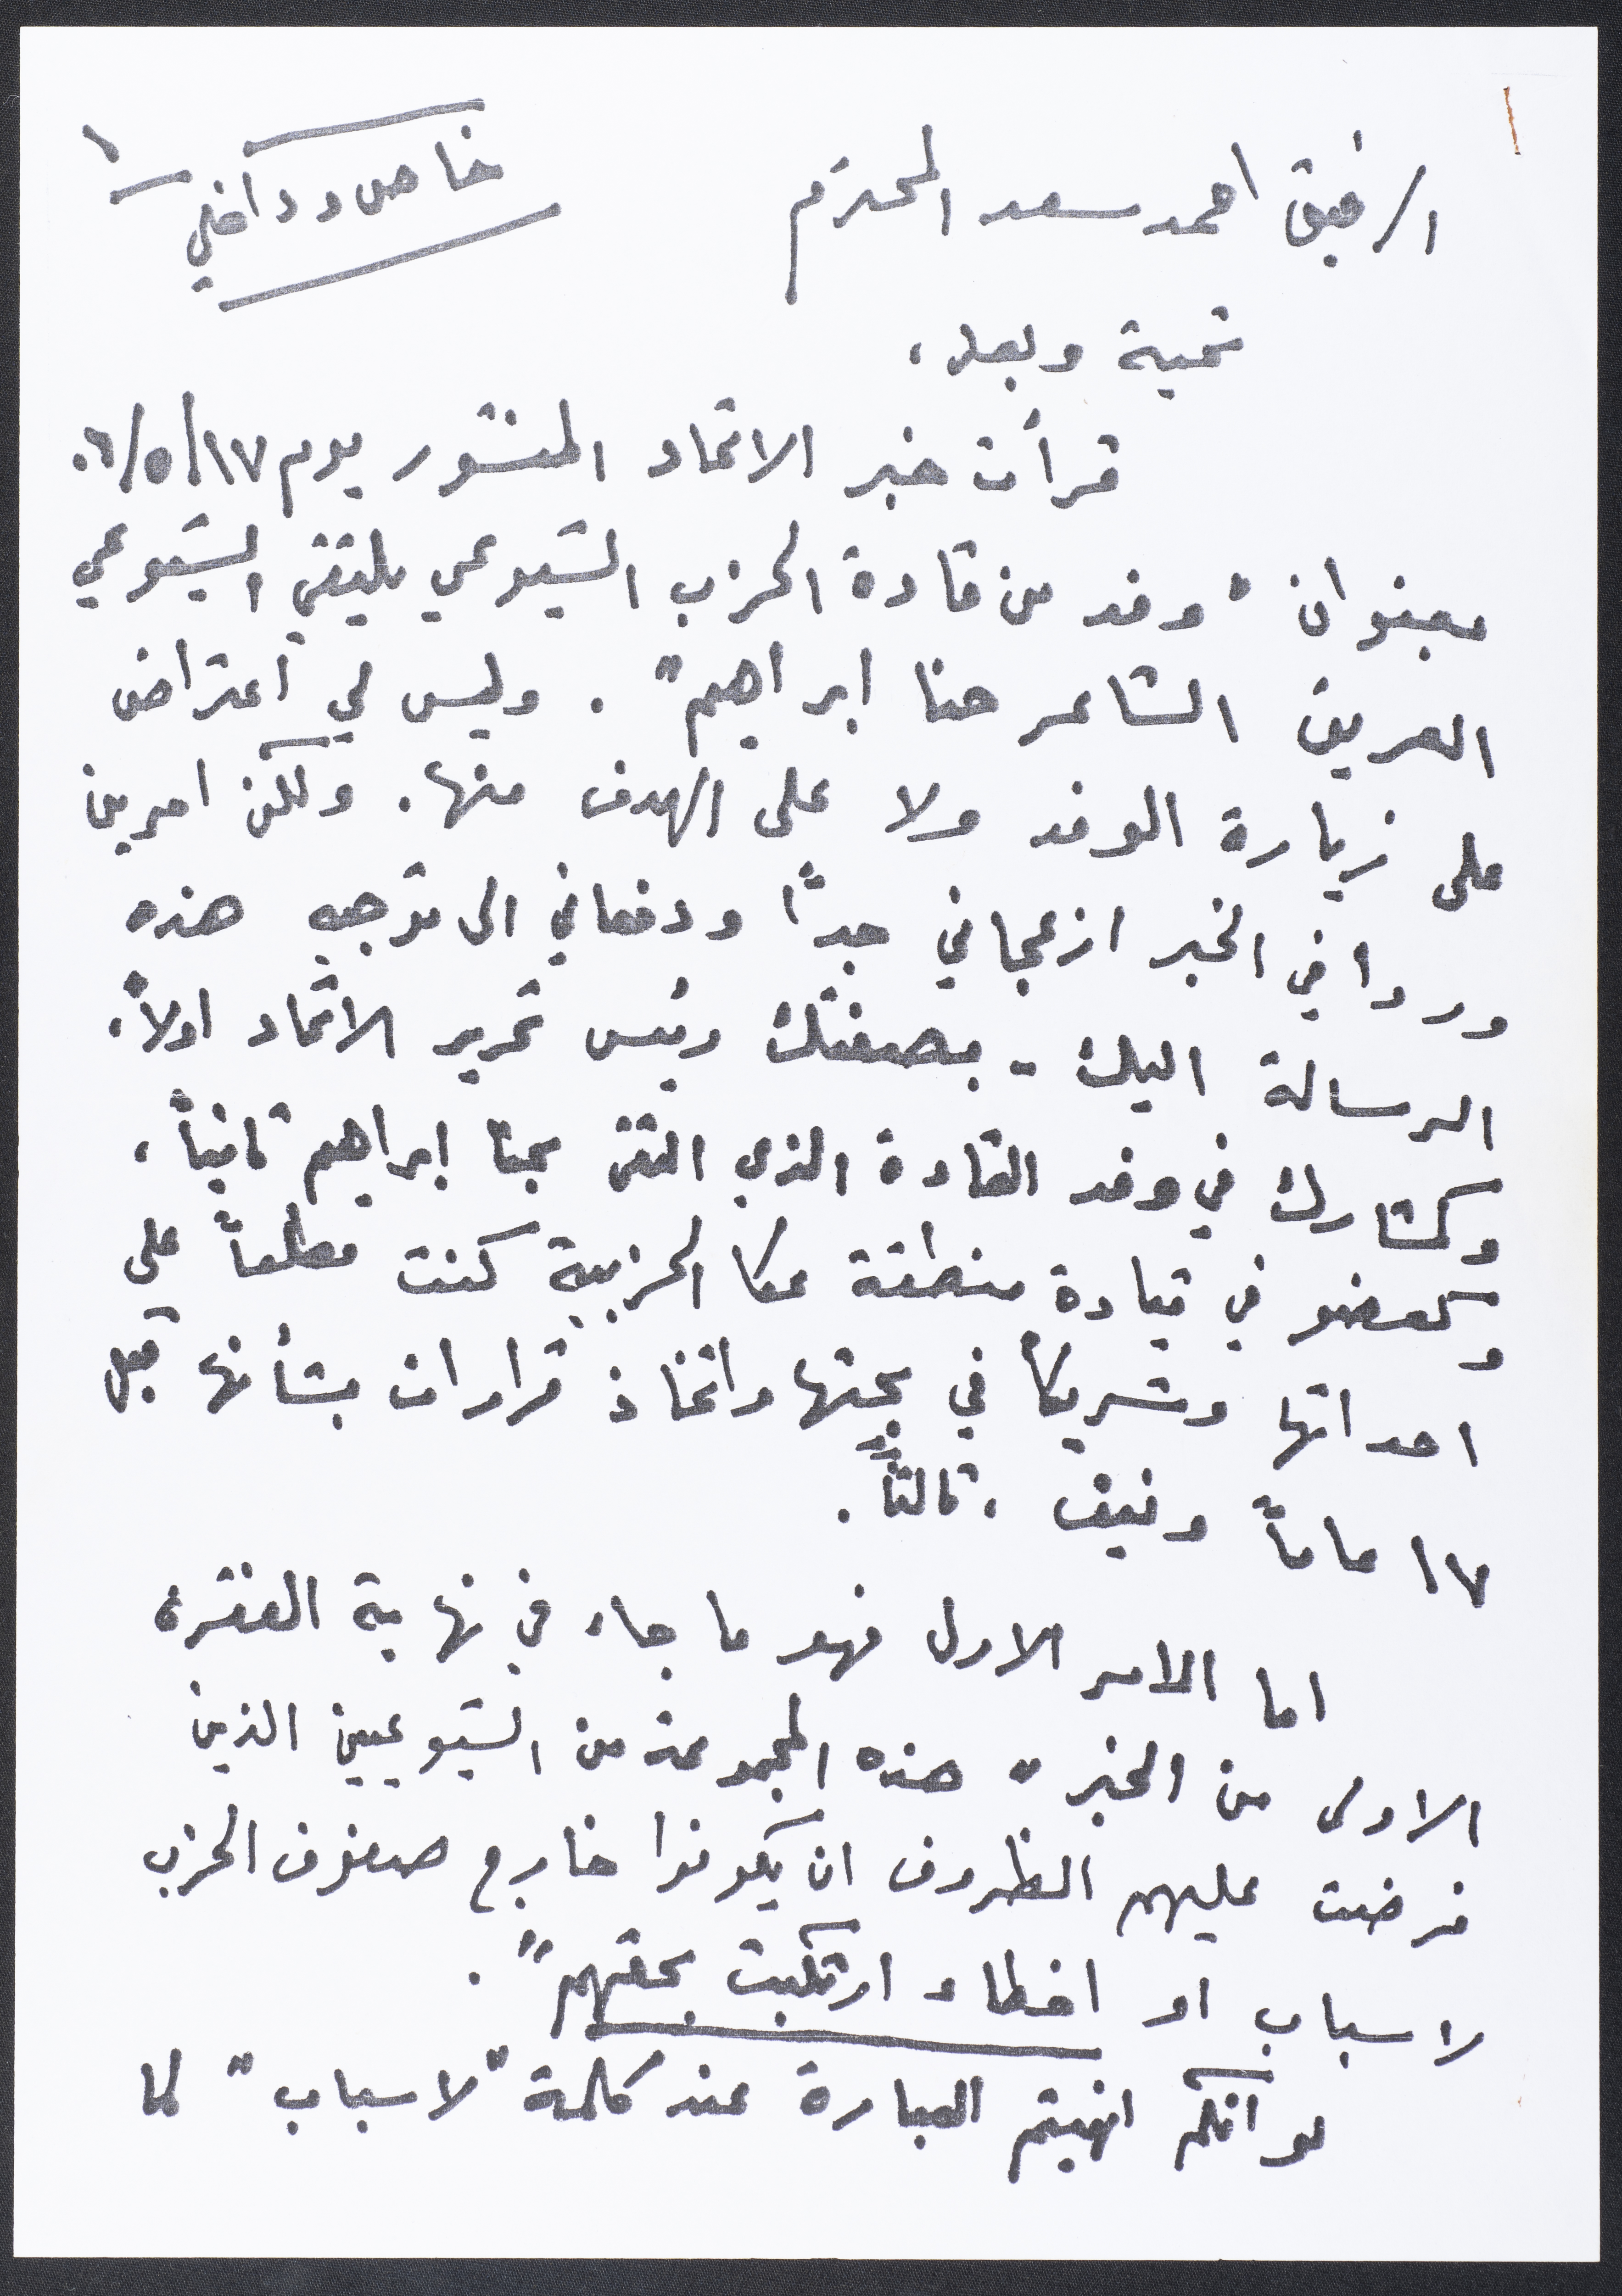 ١
خاص وداخلي
الرفيق احمد سعد المحترم
تحية وبعد،
قرأت خبر الاتحاد المنشور يوم ١٧/٥/٠٦
بعنوان "وفد من قادة الحزب الشيوعي يلتقي الشيوعي
العريق الشاعر حنا ابراهيم". وليس لي اعتراض
على زيارة الوفد ولا على الهدف منها. ولكن امرين
وردا في الخبر ازعجاني جداً ودفعاني الى توجيه هذه
الرسالة اليك - بصفتك رئيس تحرير الاتحاد اولاً.
وكمشارك في وفد القادة الذي التقى بحنا إبراهيم ثانياً،
وكعضو في قيادة منطقة عكا الحزبية كنت مطلعاً على
احداثها وشريكاً في بحثها واتخاذ قرارات بشأنها قبل
١٧ عاماً ونيف، ثالثاً.
اما الامر الاول فهو ما جاء في نهاية الفقرة
الاولى من الخبر "هذه المجموعة من الشيوعيين الذين
فرضت عليهم الظروف ان يكونوا خارج صفوف الحزب
لاسباب او اخطاء ارتكبت بحقهم".
لو انكم انهيتم العبارة عند كلمة "لاسباب" لما